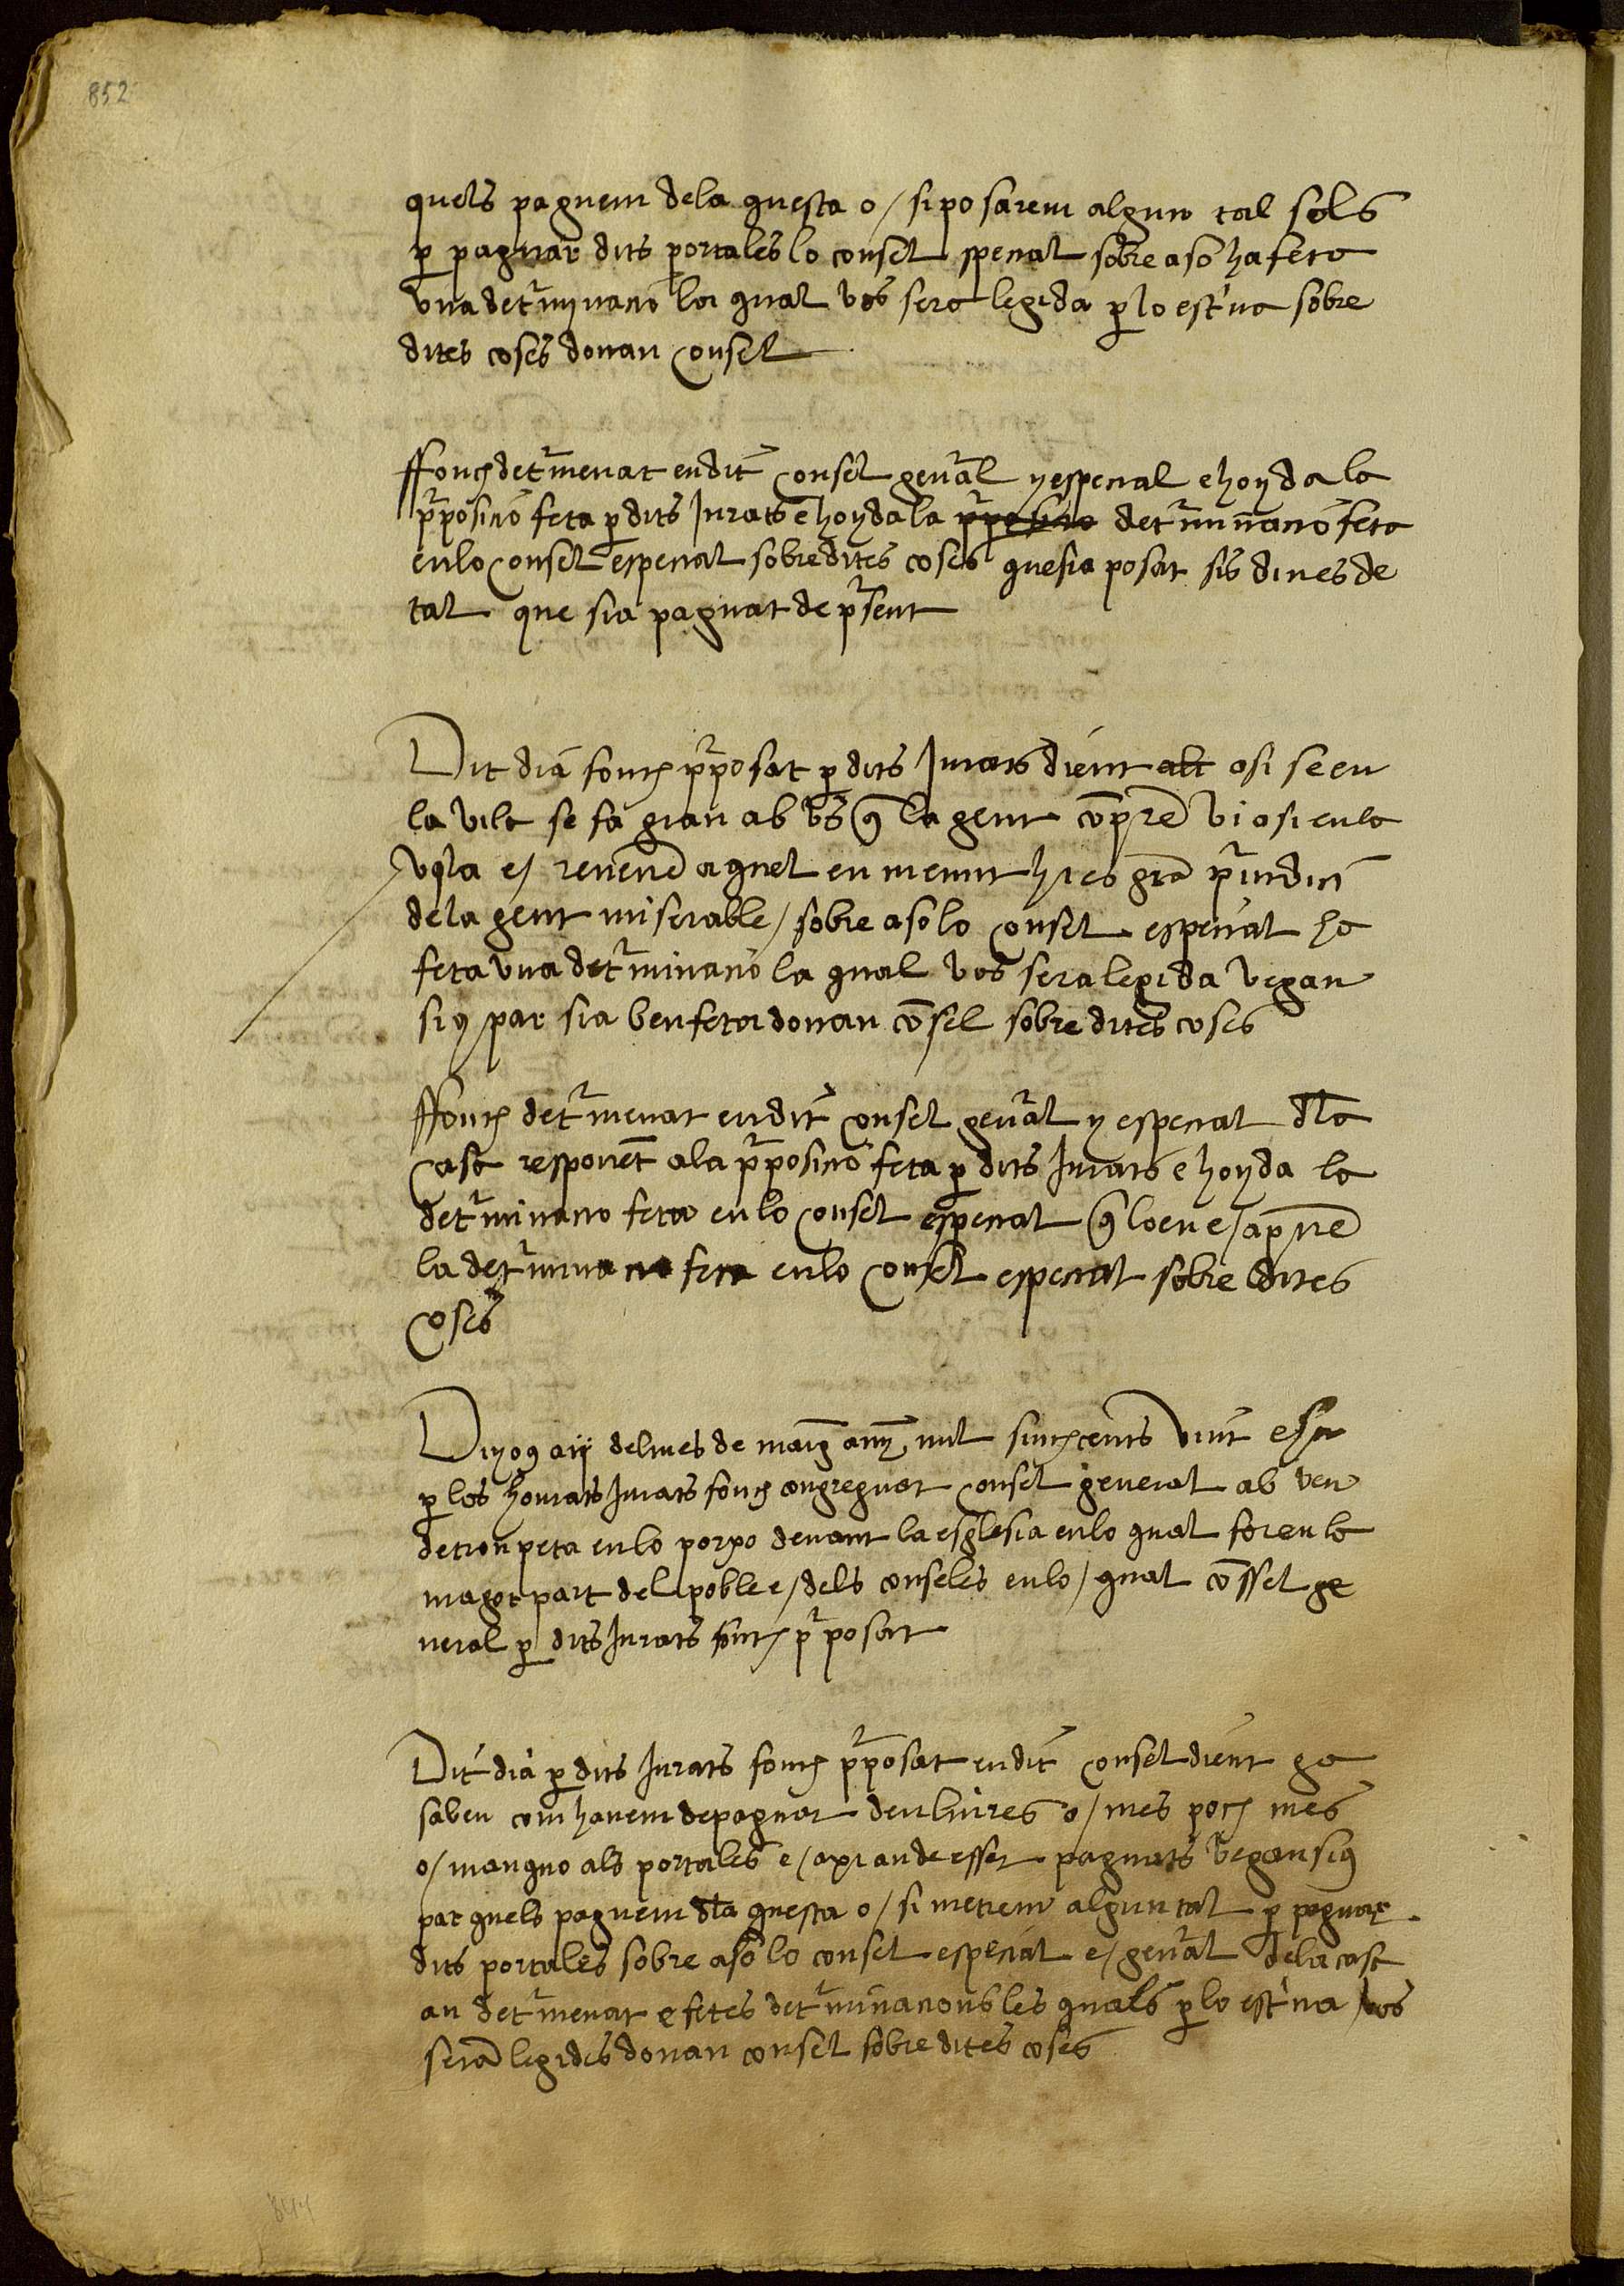 852
quels paguem dela questa o / si posarem algun tal sols
p paguar dits portales lo consel special sobre aso ha feta
vna det'minacio la qual vos sera legida p lo esc'iua sobre
dites coses donau consel
ffonch det'menat en dit consel gen'al y especial e hoyda la
p'posicio feta p dits Jurats e hoyda la p'posicio det'minacio feta
en lo consel especial sobre dites coses que sia posat sis dines de
tal que sia paguat de p'sent
Dit dia fonch p'posat p dits Jurats dient asi se en
la vila se fa gran abus q la gent conpren vi asi en la
vila e / reuenen aquel en menut hi es gran p'iudici
dela gent miserable / sobre aso lo consel especial ha
feta vna det'minacio la qual vos sera legida vegau
si q par sia ben feta donau consel sobre dites coses
ffonch det'menat en dit consel gen'al y especial dla
casa responent ala p'posicio feta p dits Jurats e hoyda la
det'minacio feta en lo consel especial q loen e / aprouen
la det'minacio feta en lo consel especial sobre dites
coses
del mes de mars any mil sinch cents vint e sis
p los honrats Jurats fonch congreguat consel general ab veu
de tronpeta en lo porxo deuant la esglesia en lo qual foren la
magor part del poble e / dels conseles en lo / qual consel ge
neral p dits Jurats fonch p'posat
Dit dia p dits Jurats fonch p'posat en dit consel dient ga
saben com hauem de paguar deu liures o / mes poch mes
o / manquo als portales e / axi an de esser paguats vegau si q
par quels paguem dla questa o / si metrem algun tal p paguar
dits portales sobre aso lo consel especial e / gen'al dela casa
an det'menat e fetes det'minacions les quals p lo esc'iua vos
seran legides donau consel sobre dites coses
844